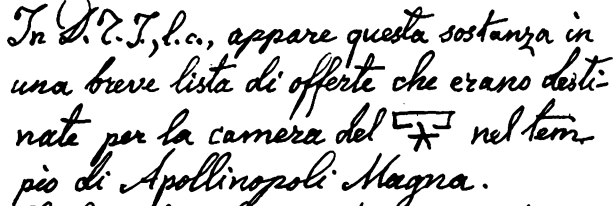 In D.T.I., l.c., appare questa sostanza in
una breve lista di offerte che erano desti-
nate per la camera del nel tem-
pio di Apollinopoli Magna.